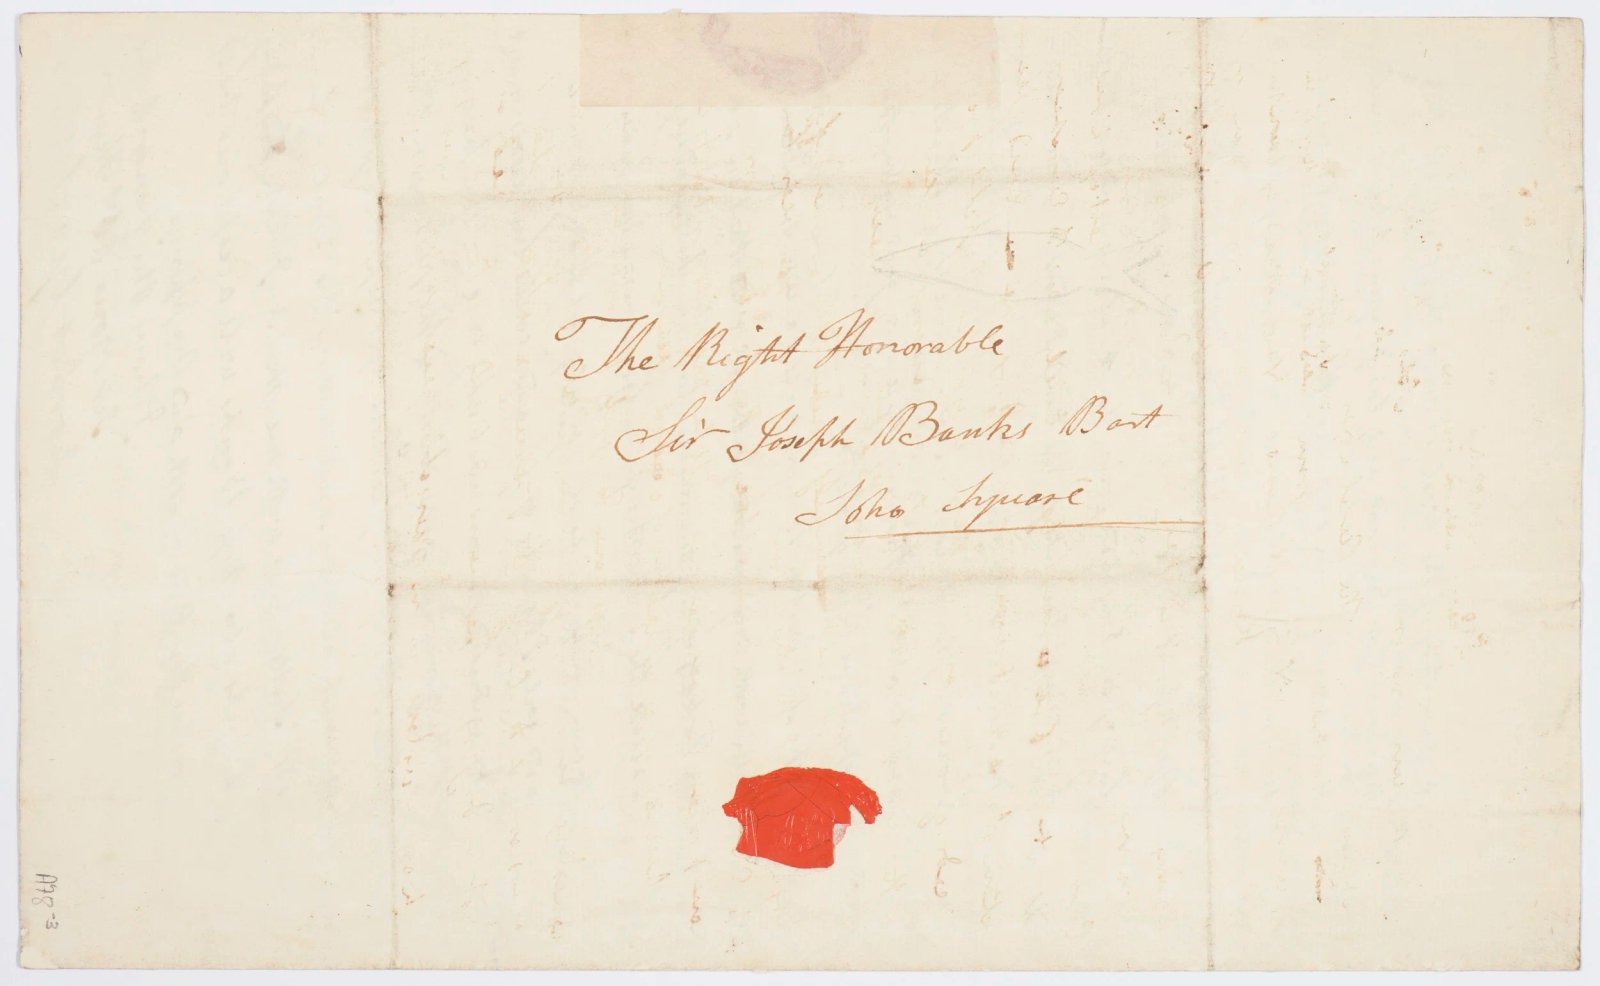 The Right Honorable
Sir Joseph Banks Bart
Soho Square
A78-3